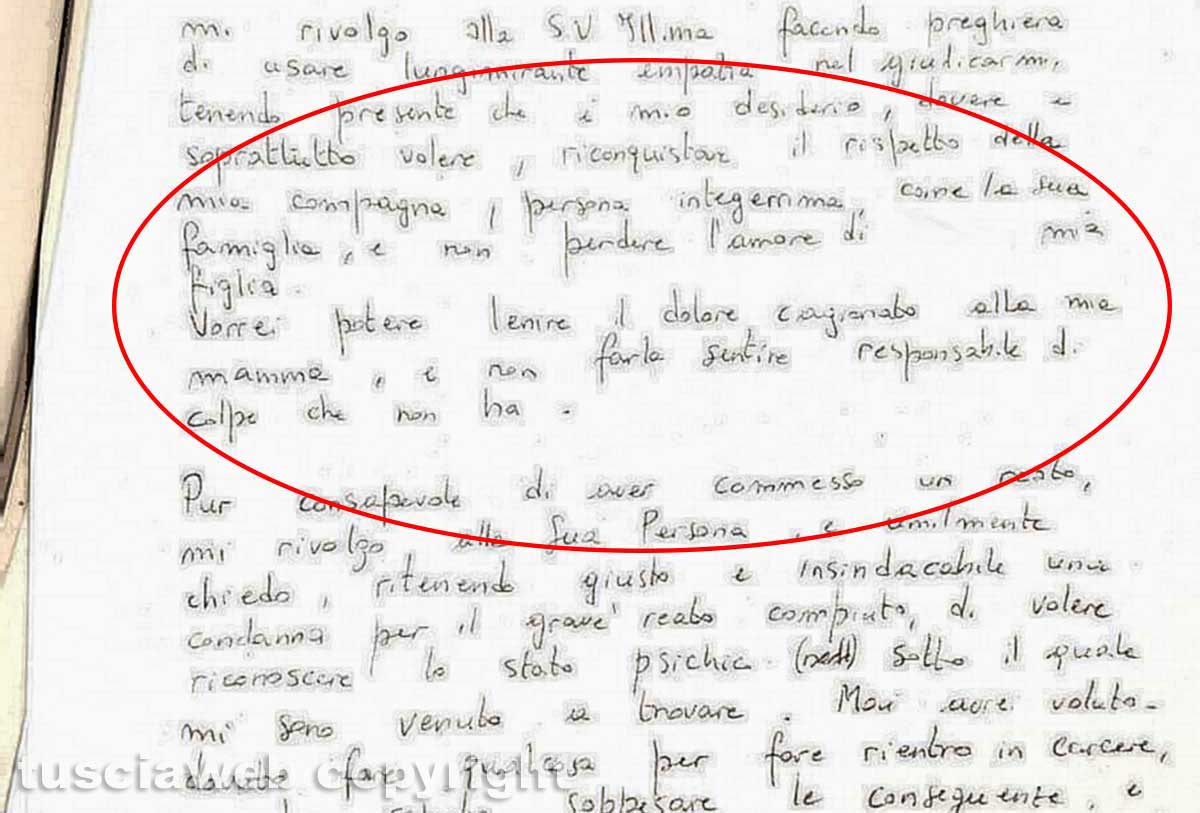 mi rivolgo alla S.V Ill.ma facendo preghiera
di usare lungimirante empatia nel giudicarmi,
tenendo presente che è mio desiderio, dovere e
soprattutto volere, riconquistare il rispetto della
mia compagna, persona integerrima, come la sua
famiglia, e non perdere l'amore di mia
figlia.
Vorrei potere lenire il dolore cagionato alla mia
mamma, e non farla sentire responsabile di
colpe che non ha.
Pur consapevole di aver commesso un reato,
mi rivolgo alla Sua Persona, e umilmente
chiedo, ritenendo giusto e insindacabile una
condanna per il grave reato compiuto, di volere
riconoscere lo stato psichic sotto il quale
mi sono venuto a trovare. Mai avrei voluto-
dovuto fare qualcosa per fare rientro in carcere,
soppesare le conseguente, e
tusciaweb copyright